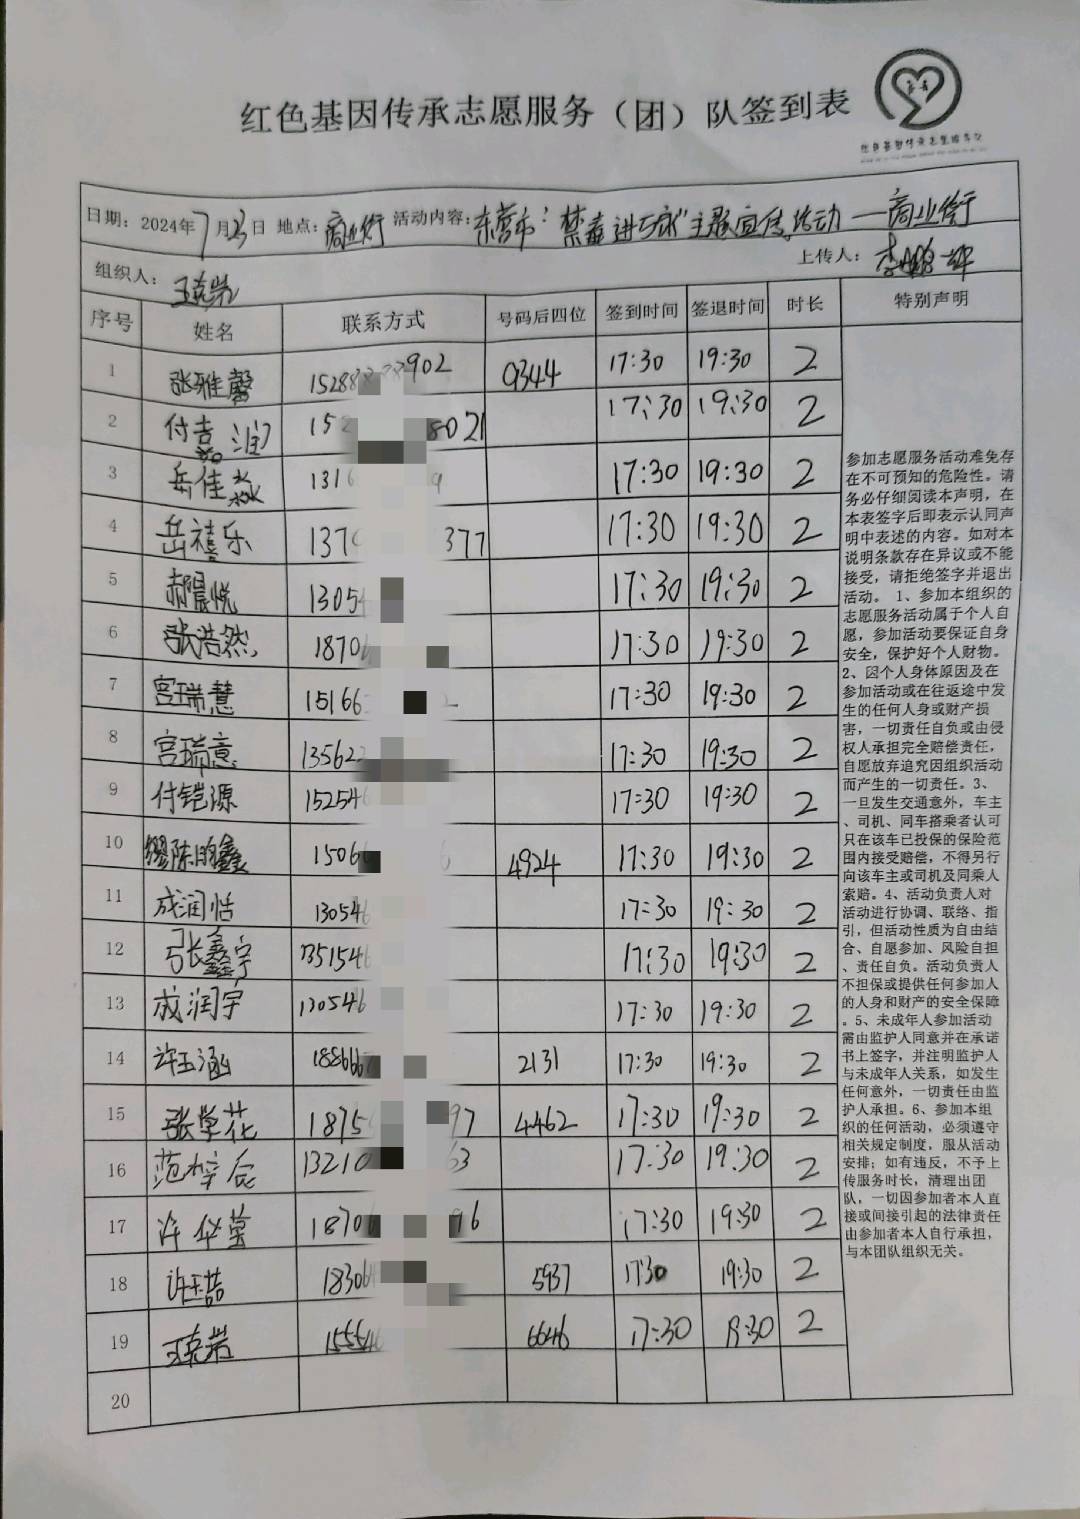 红色基因传承志愿服务（团）队签到表
日期：2024年7月23日 地点：商业街 活动内容：东营市"禁毒进万家"主题宣传活动——商业街
组织人：王克岩 上传人：李鹏辉
序号 姓名 联系方式 号码后四位 签到时间 签退时间 时长 特别声明
1 张雅馨 15288 902 9344 17:30 19:30 2
2 付嘉润 15 8021 17:30 19:30 2
3 岳佳 131 9 17:30 19:30 2
4 岳禧乐 137 377 17:30 19:30 2
5 郝晨悦 13054 17:30 19:30 2
6 张浩然 1870 17:30 19:30 2
7 宫瑞慧 15166 2 17:30 19:30 2
8 宫瑞意 135622 17:30 19:30 2
9 付铠源 152546 17:30 19:30 2
10 缪陈鑫 1506 6 4924 17:30 19:30 2
11 成润恬 130546 17:30 19:30 2
12 张鑫宇 1351546 17:30 19:30 2
13 成润宇 130546 17:30 19:30 2
14 许玉涵 188666 2131 17:30 19:30 2
15 张学花 1875 97 4462 17:30 19:30 2
16 范梓辰 13210 63 17:30 19:30 2
17 许华莹 1870 96 17:30 19:30 2
18 许玉喆 18306 5937 17:30 19:30 2
19 王克岩 155546 6646 17:30 19:30 2
20
参加志愿服务活动难免存
在不可预知的危险性。请
务必仔细阅读本声明，在
本表签字后即表示认同声
明中表述的内容。如对本
说明条款存在异议或不能
接受，请拒绝签字并退出
活动。 1、参加本组织的
志愿服务活动属于个人自
愿，参加活动要保证自身
安全，保护好个人财物。
2、因个人身体原因及在
参加活动或在往返途中发
生的任何人身或财产损
害，一切责任自负或由侵
权人承担完全赔偿责任，
自愿放弃追究因组织活动
而产生的一切责任。3、
一旦发生交通意外，车主
、司机、同车搭乘者认可
只在该车已投保的保险范
围内接受赔偿，不得另行
向该车主或司机及同乘人
索赔。4、活动负责人对
活动进行协调、联络、指
引，但活动性质为自由结
合、自愿参加、风险自担
、责任自负。活动负责人
不担保或提供任何参加人
的人身和财产的安全保障
。5、未成年人参加活动
需由监护人同意并在承诺
书上签字，并注明监护人
与未成年人关系，如发生
任何意外，一切责任由监
护人承担。6、参加本组
织的任何活动，必须遵守
相关规定制度，服从活动
安排；如有违反，不予上
传服务时长，清理出团
队，一切因参加者本人直
接或间接引起的法律责任
由参加者本人自行承担，
与本团队组织无关。